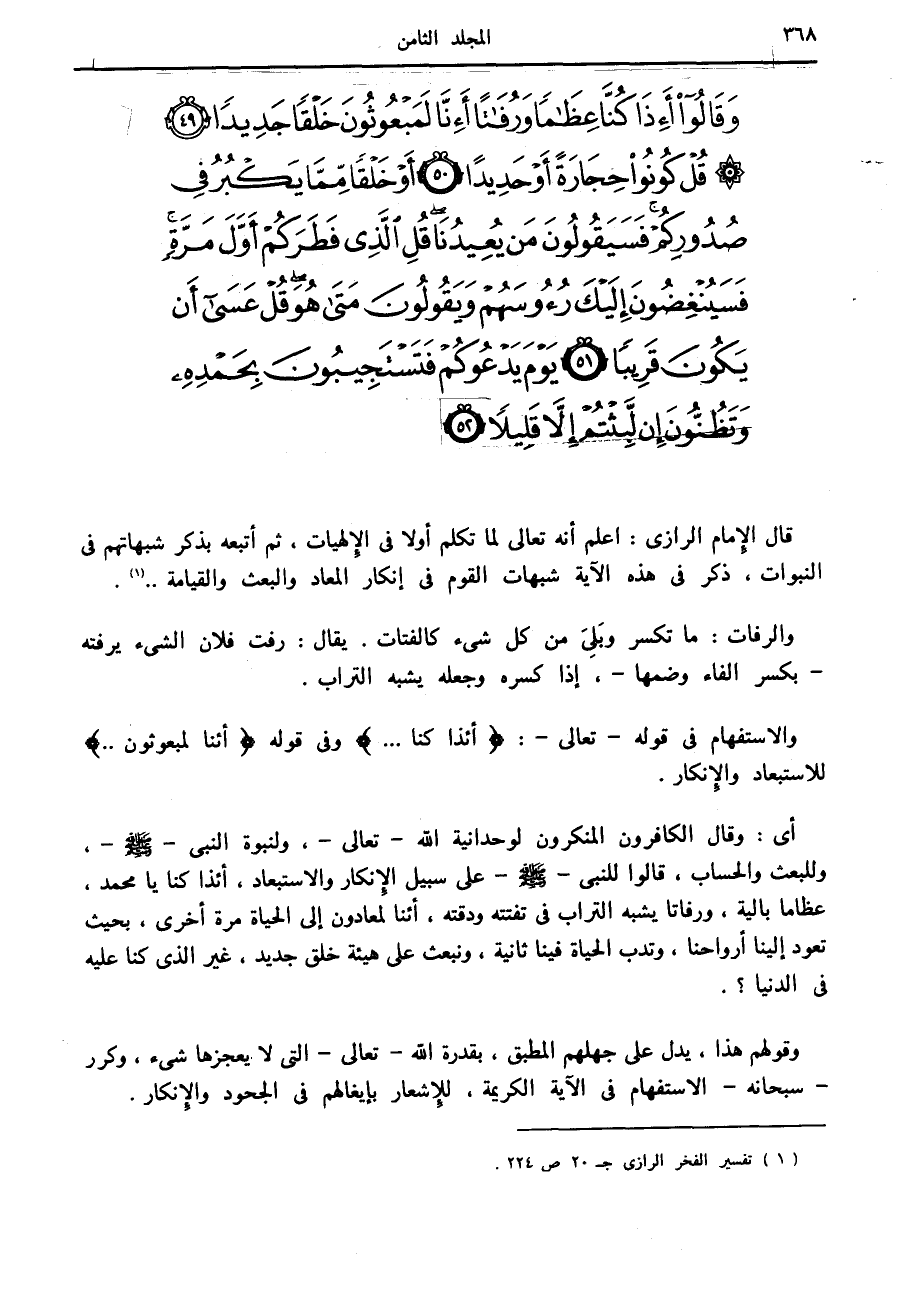 ٣٦٨
المجلد الثامن
وَقَالُوٓا۟ أَءِذَا كُنَّا عِظَٰمًا وَرُفَٰتًا أَءِنَّا لَمَبْعُوثُونَ خَلْقًا جَدِيدًا ٤٩
۞ قُلْ كُونُوا۟ حِجَارَةً أَوْ حَدِيدًا ٥٠ أَوْ خَلْقًا مِّمَّا يَكْبُرُ فِى
صُدُورِكُمْ ۚ فَسَيَقُولُونَ مَن يُعِيدُنَا ۖ قُلِ ٱلَّذِى فَطَرَكُمْ أَوَّلَ مَرَّةٍ ۚ
فَسَيُنْغِضُونَ إِلَيْكَ رُءُوسَهُمْ وَيَقُولُونَ مَتَىٰ هُوَ ۖ قُلْ عَسَىٰٓ أَن
يَكُونَ قَرِيبًا ٥١ يَوْمَ يَدْعُوكُمْ فَتَسْتَجِيبُونَ بِحَمْدِهِۦ
وَتَظُنُّونَ إِن لَّبِثْتُمْ إِلَّا قَلِيلًا ٥٢
قال الإمام الرازى : اعلم أنه تعالى لما تكلم أولا فى الإلهيات ، ثم أتبعه بذكر شبهاتهم فى
النبوات ، ذكر فى هذه الآية شبهات القوم فى إنكار المعاد والبعث والقيامة ..(١) .
والرفات : ما تكسر وبَلِىَ من كل شىء كالفتات . يقال : رفت فلان الشىء يرفته
– بكسر الفاء وضمها – ، إذا كسره وجعله يشبه التراب .
والاستفهام فى قوله – تعالى – : ﴿ أئذا كنا ... ﴾ وفى قوله ﴿ أئنا لمبعوثون ..﴾
للاستبعاد والإنكار .
أى : وقال الكافرون المنكرون لوحدانية الله – تعالى – ، ولنبوة النبى – ﷺ – ،
وللبعث والحساب ، قالوا للنبى – ﷺ – على سبيل الإنكار والاستبعاد ، أئذا كنا يا محمد ،
عظاما بالية ، ورفاتا يشبه التراب فى تفتته ودقته ، أئنا لمعادون إلى الحياة مرة أخرى ، بحيث
تعود إلينا أرواحنا ، وتدب الحياة فينا ثانية ، ونبعث على هيئة خلق جديد ، غير الذى كنا عليه
فى الدنيا ؟ .
وقولهم هذا ، يدل على جهلهم المطبق ، بقدرة الله – تعالى – التى لا يعجزها شىء ، وكرر
– سبحانه – الاستفهام فى الآية الكريمة ، للإشعار بإيغالهم فى الجحود والإنكار .
( ١ ) تفسير الفخر الرازى جـ ٢٠ ص ٢٢٤ .